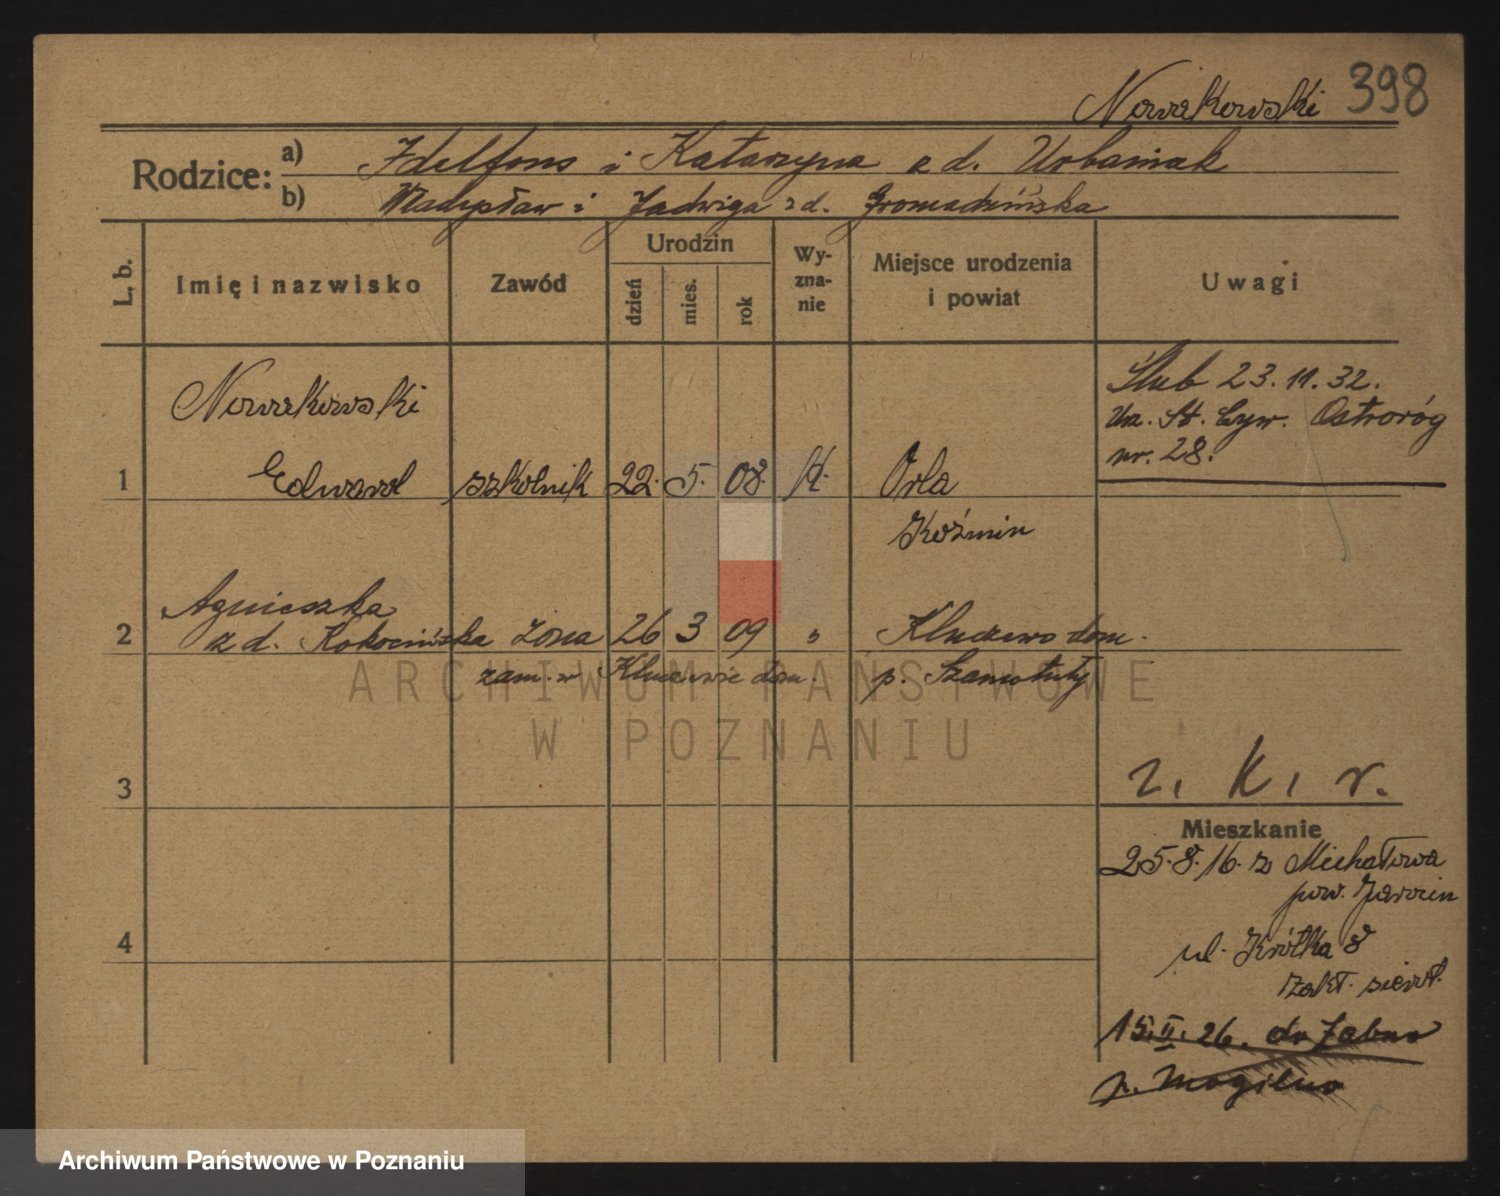 Nowakowski 398
Rodzice: a) Idelfons i Katarzyna z d. Urbaniak
b) Władysław i Jadwiga z d. Gromadzińska
L. b. Imię i nazwisko Zawód Urodzin dzień mies. rok Wy-zna-nie Miejsce urodzenia i powiat Uwagi
Ślub 23.11.32.
Urz. St. Cyw. Ostroróg
nr. 28.
Nowakowski
1 Edward szkolnik 22. 5. 08. kt. Orla
Koźmin
Agnieszka
2 z d. Kokocińska żona 26 3 09 " Kluczewo dom.
zam. w Kluczewie dom. p. Szamotuły
3 r. k. r.
Mieszkanie
25.8.16. z Michałowa
pow. Jarocin
4 ul. Krótka 8
zakł. sierot.
15.II.26. do Żabno
p. Mogilno
ARCHIWUM PAŃSTWOWE
W POZNANIU
Archiwum Państwowe w Poznaniu